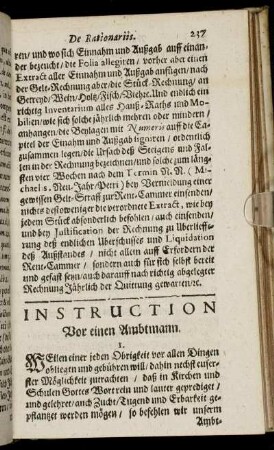 De Rationariis. 237
ren/ und wo sich Einnahm und Außgab auff einan-
der bezeucht/ die Folia allegiren/ vorher aber einen
Extract aller Einnahm und Außgab anfügen/ nach
der Gelt-Rechnung aber/ die Stück-Rechnung/ an
Getreyd/ Wein/ Holtz/ Fisch/ Viehe. Und endlich ein
richtig Inventarium alles Hauß-Raths und Mo-
bilien/ wie sich solche jährlich mehren oder mindern/
anhangen/ die Beylagen mit Numeris auff die Ca-
pitel der Einahm und Außgab signiren/ ordentlich
zusammen legen/ die Ursach deß Steigens und Fal-
lens in der Rechnung bezeichnen/ und solche zum läng-
sten vier Wochen nach dem Termin N. N. (Mi-
chaels. Neu-Jahr/ Petri) bey Vermeidung einer
gewissen Gelt-Straff zur Rent-Cammer einsenden/
nichts destoweniger die verordnete Extract, wie bey
jedem Stück absonderlich befohlen/ auch einsenden/
und bey Justification der Rechnung zu Überlieffe-
rung deß endlichen Uberschusses und Liquidation
deß Außstandes/ nicht allein auff Erfordern der
Rent-Cammer/ sondern auch für sich selbst bereit
und gefast seyn/ auch darauff nach richtig abgelegter
Rechnung Jährlich der Quittung gewarten/ ꝛc.
INSTRUCTION
Vor einen Ambtmann.
1.
WEilen einer jeden Obrigkeit vor allen Dingen
obliegen und gebühren will/ dahin nechst euser-
ster Möglichkeit zutrachten/ daß in Kirchen und
Schulen Gottes Wort rein und lauter geprediget/
und gelehret/ auch Zucht/ Tugend und Erbarkeit ge-
pflantzet werden mögen/ so befehlen wir unserm
Ambt-